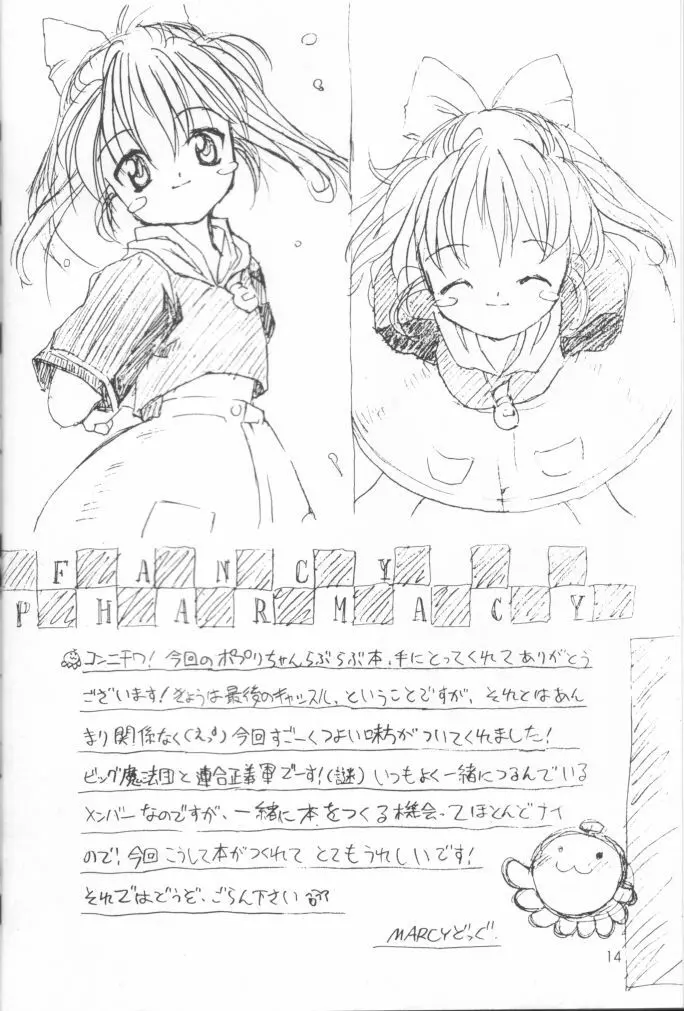 FANCY
PHARMACY
コンニチワ！今回のポプリちゃんらぶらぶ本、手にとってくれてありがとう
ございます！きょうは最後のキャッスル、ということですが、それとはあん
まり関係なく(えっ)今回すごーくつよい味方がついてくれました！
ビッグ魔法団と連合正義軍でーす！(謎)いつもよく一緒につるんでいる
メンバーなのですが、一緒に本をつくる機会ってほとんどナイ
ので、今回こうして本がつくれてとてもうれしいです！
それではどうぞ、ごらん下さい
MARCYどっぐ.
14